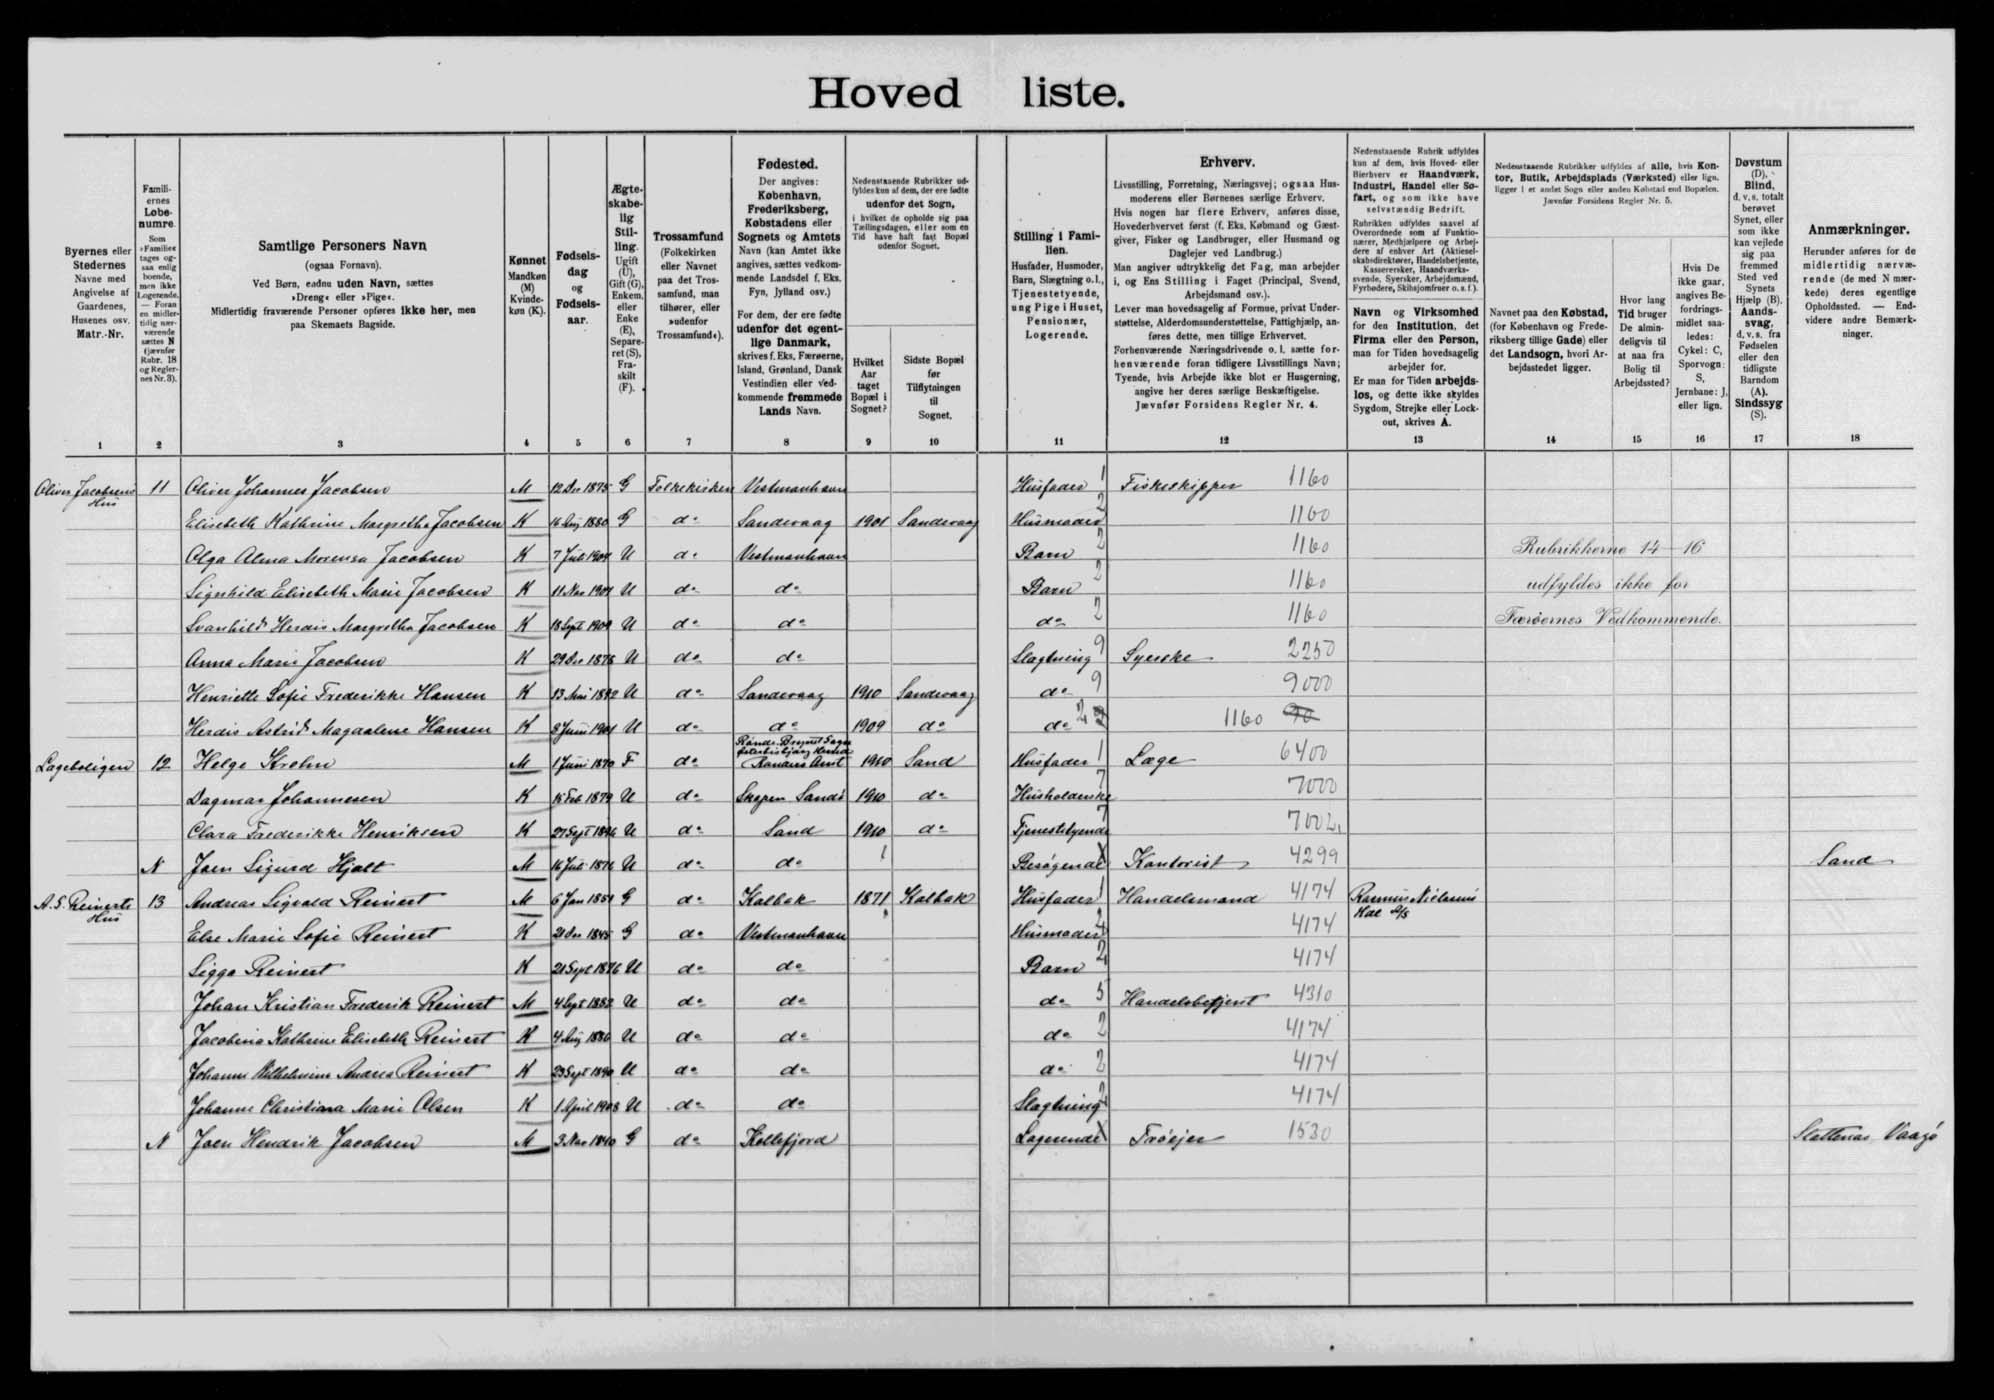 Hoved liste.
Byernes eller Stedernes Navne med Angivelse af Gaardenes, Husenes osv. Matr.-Nr.
Familiernes Løbenumre. Som »Familie« tages ogsaa enlig boende, men ikke Logerende. — Foran en midlertidig nærværende sættes N (jævnfør Rubr. 18 og Reglernes Nr. 3).
Samtlige Personers Navn (ogsaa Fornavn). Ved Børn, endnu uden Navn, sættes »Dreng« eller »Pige«. Midlertidig fraværende Personer opføres ikke her, men paa Skemaets Bagside.
Kønnet Mandkøn (M) Kvindekøn (K).
Fødselsdag og Fødselsaar.
Ægteskabelig Stilling. Ugift (U), Gift (G), Enkem. eller Enke (E), Separeret (S), Fraskilt (F).
Trossamfund (Folkekirken eller Navnet paa det Trossamfund, man tilhører, eller »udenfor Trossamfund«).
Fødested. Der angives: København, Frederiksberg, Købstadens eller Sognets og Amtets Navn (kan Amtet ikke angives, sættes vedkommende Landsdel f. Eks. Fyn, Jylland osv.) For dem, der ere fødte udenfor det egentlige Danmark, skrives f. Eks. Færøerne, Island, Grønland, Dansk Vestindien eller vedkommende fremmede Lands Navn.
Nedenstaaende Rubrikker udfyldes kun af dem, der ere fødte udenfor det Sogn, i hvilket de opholde sig paa Tællingsdagen, eller som en Tid have haft fast Bopæl udenfor Sognet.
Hvilket Aar taget Bopæl i Sognet?
Sidste Bopæl før Tilflytningen til Sognet.
Stilling i Familien. Husfader, Husmoder, Barn, Slægtning o. l., Tjenestetyende, ung Pige i Huset, Pensionær, Logerende.
Erhverv. Livsstilling, Forretning, Næringsvej; ogsaa Husmoderens eller Børnenes særlige Erhverv. Hvis nogen har flere Erhverv, anføres disse, Hovederhvervet først (f. Eks. Købmand og Gæstgiver, Fisker og Landbruger, eller Husmand og Daglejer ved Landbrug.) Man angiver udtrykkelig det Fag, man arbejder i, og Ens Stilling i Faget (Principal, Svend, Arbejdsmand osv.). Lever man hovedsagelig af Formue, privat Understøttelse, Alderdomsunderstøttelse, Fattighjælp, anføres dette, men tillige Erhvervet. Forhenværende Næringsdrivende o. l. sætte forhenværende foran tidligere Livsstillings Navn; Tyende, hvis Arbejde ikke blot er Husgerning, angive her deres særlige Beskæftigelse. Jævnfør Forsidens Regler Nr. 4.
Nedenstaaende Rubrik udfyldes kun af dem, hvis Hoved- eller Bierhverv er Haandværk, Industri, Handel eller Søfart, og som ikke have selvstændig Bedrift. Rubrikken udfyldes saavel af Overordnede som af Funktionærer, Medhjælpere og Arbejdere af enhver Art (Aktieselskabsdirektører, Handelsbetjente, Kasserersker, Haandværkssvende, Syersker, Arbejdsmænd, Fyrbødere, Skibsjomfruer o. s. f.).
Navn og Virksomhed for den Institution, det Firma eller den Person, man for Tiden hovedsagelig arbejder for. Er man for Tiden arbejdsløs, og dette ikke skyldes Sygdom, Strejke eller Lockout, skrives A.
Nedenstaaende Rubrikker udfyldes af alle, hvis Kontor, Butik, Arbejdsplads (Værksted) eller lign. ligger i et andet Sogn eller anden Købstad end Bopælen. Jævnfør Forsidens Regler Nr. 5.
Navnet paa den Købstad, (for København og Frederiksberg tillige Gade) eller det Landsogn, hvori Arbejdsstedet ligger.
Hvor lang Tid bruger De almindeligvis til at naa fra Bolig til Arbejdssted?
Hvis De ikke gaar, angives Befordringsmidlet saaledes: Cykel: C, Sporvogn: S, Jernbane: J, eller lign.
Døvstum (D), Blind, d. v. s. totalt berøvet Synet, eller som ikke kan vejlede sig paa fremmed Sted ved Synets Hjælp (B). Aandssvag, d. v. s. fra Fødselen eller den tidligste Barndom (A). Sindssyg (S).
Anmærkninger. Herunder anføres for de midlertidig nærværende (de med N mærkede) deres egentlige Opholdssted. — Endvidere andre Bemærkninger.
1 2 3 4 5 6 7 8 9 10 11 12 13 14 15 16 17 18
Oliver Jacobsens Hus 11 Oliver Johannes Jacobsen M 12 Dec 1875 G Folkekirken Vestmanhavn Husfader 1 Fiskeskipper 1160
Elisebeth Kathrine Margretha Jacobsen K 16 Aug 1880 G do Sandevaag 1901 Sandevaag Husmoder 2 1160
Olga Alma Morensa Jacobsen K 7 Juli 1904 U do Vestmanhavn Barn 2 1160 Rubrikkerne 14–16
Signhild Elisebeth Marie Jacobsen K 11 Nov 1907 U do do Barn 2 1160 udfyldes ikke for
Svanhild Herdis Margretha Jacobsen K 18 Sept 1909 U do do do 2 1160 Færøernes Vedkommende.
Anna Marie Jacobsen K 29 Dec 1878 U do do Slægtning 9 Syerske 2250
Henriette Sofie Frederikke Hansen K 13 Mai 1892 U do Sandevaag 1910 Sandevaag do 9 9000
Herdis Astrid Magdalene Hansen K 8 Juni 1901 U do do 1909 do do 2 1160
Lægeboligen 12 Helge Krehn M 1 Juni 1870 F do Randers Amt 1910 Sand Husfader 1 Læge 6400
Dagmar Johannesen K 15 Feb 1879 U do Skopen Sandø 1910 do Husholderske 7 7000
Clara Frederikke Henriksen K 27 Sept 1896 U do Sand 1910 do Tjenestetyende 7 7002
N Joen Sigurd Hjalt M 16 Juli 1876 U do do Besøgende X Kontorist 4299 Sand
A. S. Reinerts Hus 13 Andreas Sigvald Reinert M 6 Jan 1851 G do Kalbak 1871 Kalbak Husfader 1 Handelsmand 4174 Rasmus Nielsens
Else Marie Sofie Reinert K 21 Dec 1845 G do Vestmanhavn Husmoder 2 4174
Sigga Reinert K 21 Sept 1876 U do do Barn 2 4174
Johan Kristian Frederik Reinert M 4 Sept 1882 U do do do 5 Handelsbetjent 4310
Jacobina Kathrine Elisebeth Reinert K 4 Aug 1886 U do do do 2 4174
Johanne Wilhelmine Andrea Reinert K 23 Sept 1890 U do do do 2 4174
Johanne Christiana Marie Olsen K 1 April 1908 U do do Slægtning 2 4174
N Joen Hendrik Jacobsen M 3 Nov 1840 G do Kollefjord Logerende X Trøejer 1530 Slettenæs Vaagø